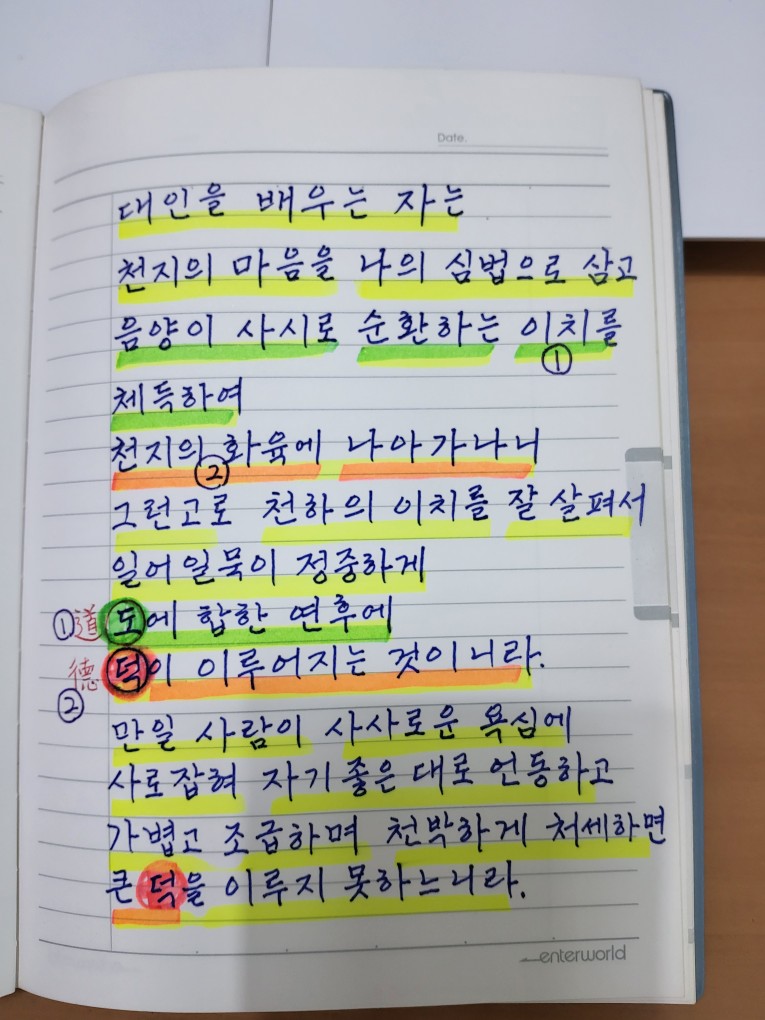 Date.
대인을 배우는 자는
천지의 마음을 나의 심법으로 삼고
음양이 사시로 순환하는 이치를
①
체득하여
천지의 화육에 나아가나니
②
그런고로 천하의 이치를 잘 살펴서
일어일묵이 정중하게
①道 도에 합한 연후에
德 덕이 이루어지는 것이니라.
②
만일 사람이 사사로운 욕심에
사로잡혀 자기좋은 대로 언동하고
가볍고 조급하며 천박하게 처세하면
큰 덕을 이루지 못하느니라.
enterworld